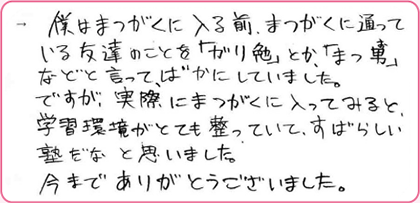 僕はまつがくに入る前、まつがくに通って
いる友達のことを「がり勉」とか、「まつ勇」
などと言って、ばかにしていました。
ですが、実際にまつがくに入ってみると、
学習環境がとても整っていて、すばらしい
塾だなと思いました。
今までありがとうございました。